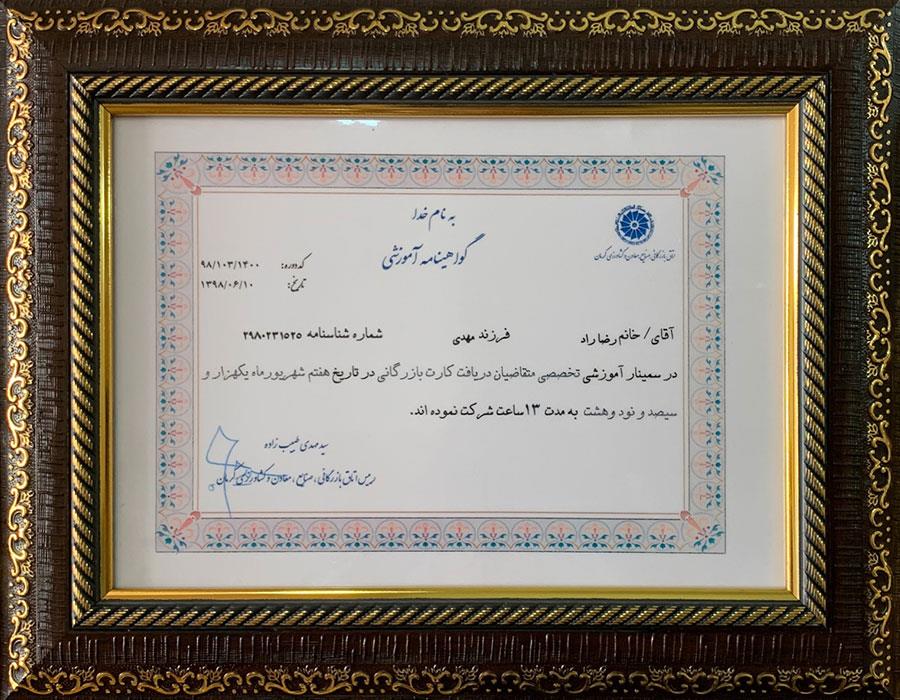 به نام خدا
گواهینامه آموزشی
اتاق بازرگانی، صنایع، معادن و کشاورزی کرمان
کد دوره: ۹۸/۱۰۳/۱۴۰۰
تاریخ: ۱۳۹۸/۰۶/۱۰
آقای/ خانم رضا راد فرزند مهدی شماره شناسنامه ۲۹۸۰۲۳۱۵۲۵
در سمینار آموزشی تخصصی متقاضیان دریافت کارت بازرگانی در تاریخ هفتم شهریور ماه یکهزار و
سیصد و نود و هشت به مدت ۱۳ ساعت شرکت نموده اند.
سید مهدی طبیب زاده
رییس اتاق بازرگانی، صنایع، معادن و کشاورزی کرمان